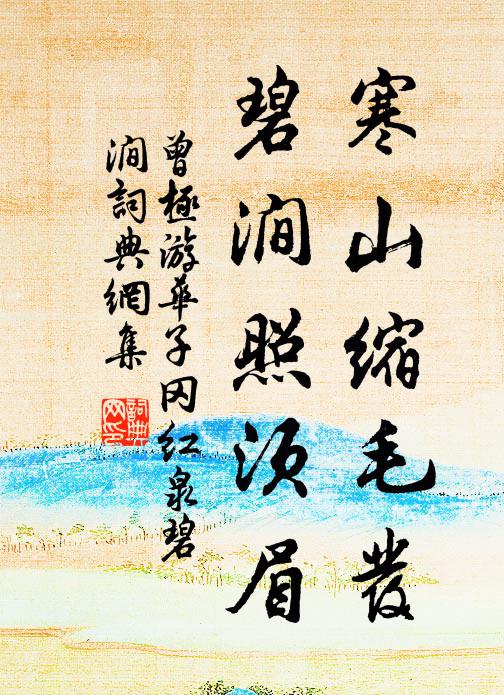 寒山缩毛发
碧涧照须眉
曾極游華子冈红泉碧
澗詞典網集
詞典
网印